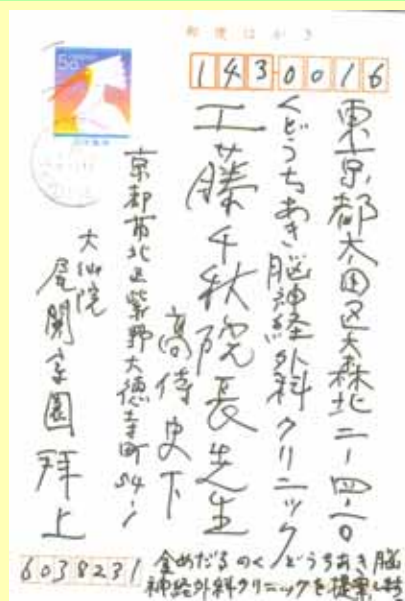 郵便はがき
50
1430016
東京都大田区大森北二ー四ー一〇
くどうちあき脳神経外科クリニック
工藤千秋院長先生
高侍史下
京都市北区紫野大徳寺町54-1
大仙院
尾関宗園拝上
6038231
くどうちあき脳
神経外科クリニックを提案